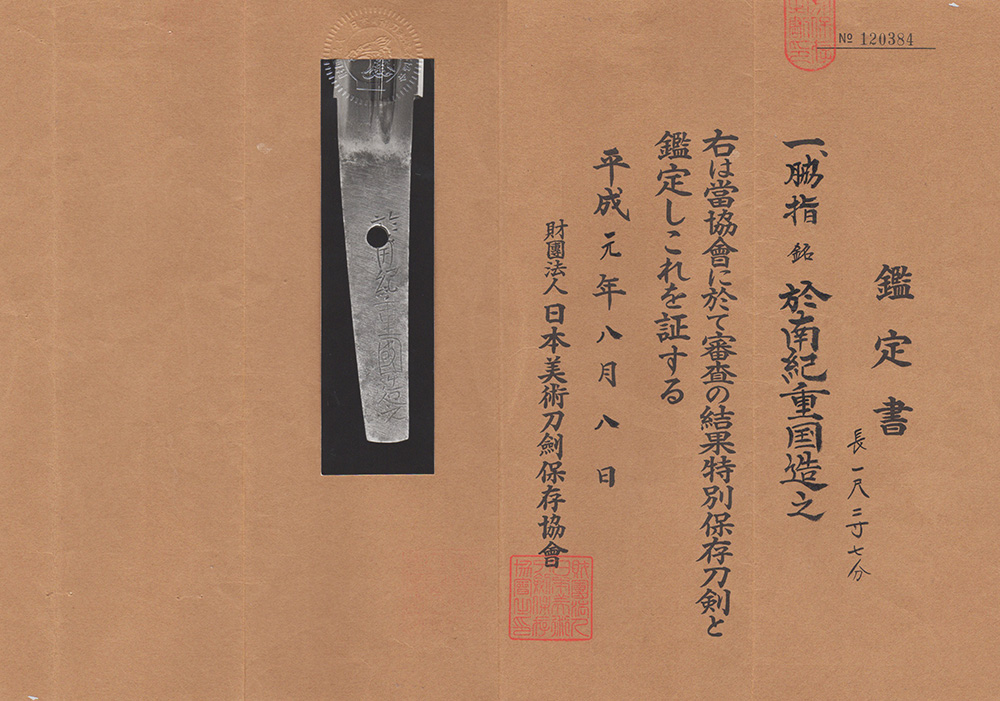 № 120384
鑑定書
長一尺二寸七分
一、脇指 銘 於南紀重国造之
右は當協會に於て審査の結果特別保存刀剣と
鑑定しこれを証する
平成元年八月八日
財團法人日本美術刀劍保存協會
財團法人
日本美術
刀劍保存
協會之印
於南紀重國造之